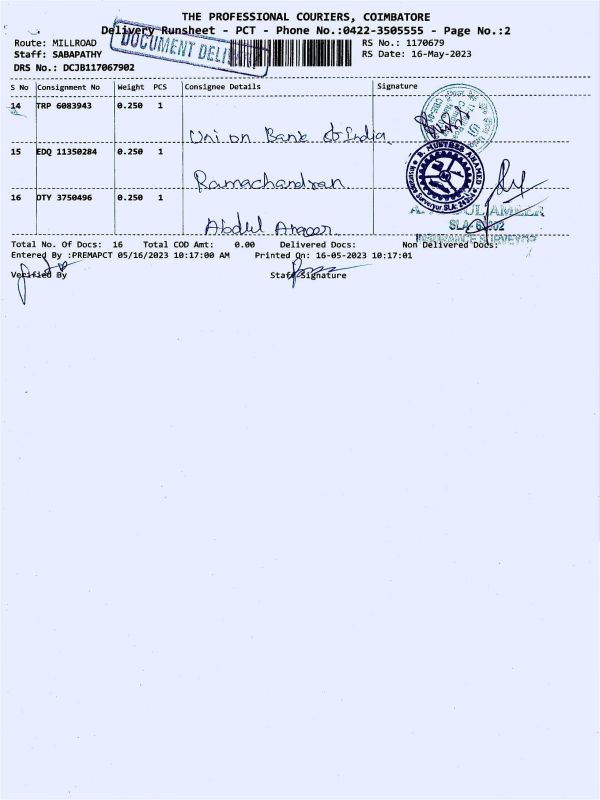 THE PROFESSIONAL COURIERS, COIMBATORE
Delivery Runsheet - PCT - Phone No.:0422-3505555 - Page No.:2
DOCUMENT
Route: MILLROAD RS No.: 1170679
Staff: SABAPATHY RS Date: 16-May-2023
DRS No.: DCJB117067902
S No Consignment No Weight PCS Consignee Details Signature
14 TRP 6083943 0.250 1
Union Bank of India
15 EDQ 11350284 0.250 1
Ramachandran
16 DTY 3750496 0.250 1
Abdul Ameer
B. MUSTHER AHAMED
SLA
INSURANCE SURVEYOR
Total No. Of Docs: 16 Total COD Amt: 0.00 Delivered Docs: Non Delivered Docs:
Entered By :PREMAPCT 05/16/2023 10:17:00 AM Printed On: 16-05-2023 10:17:01
Verified By Staff Signature